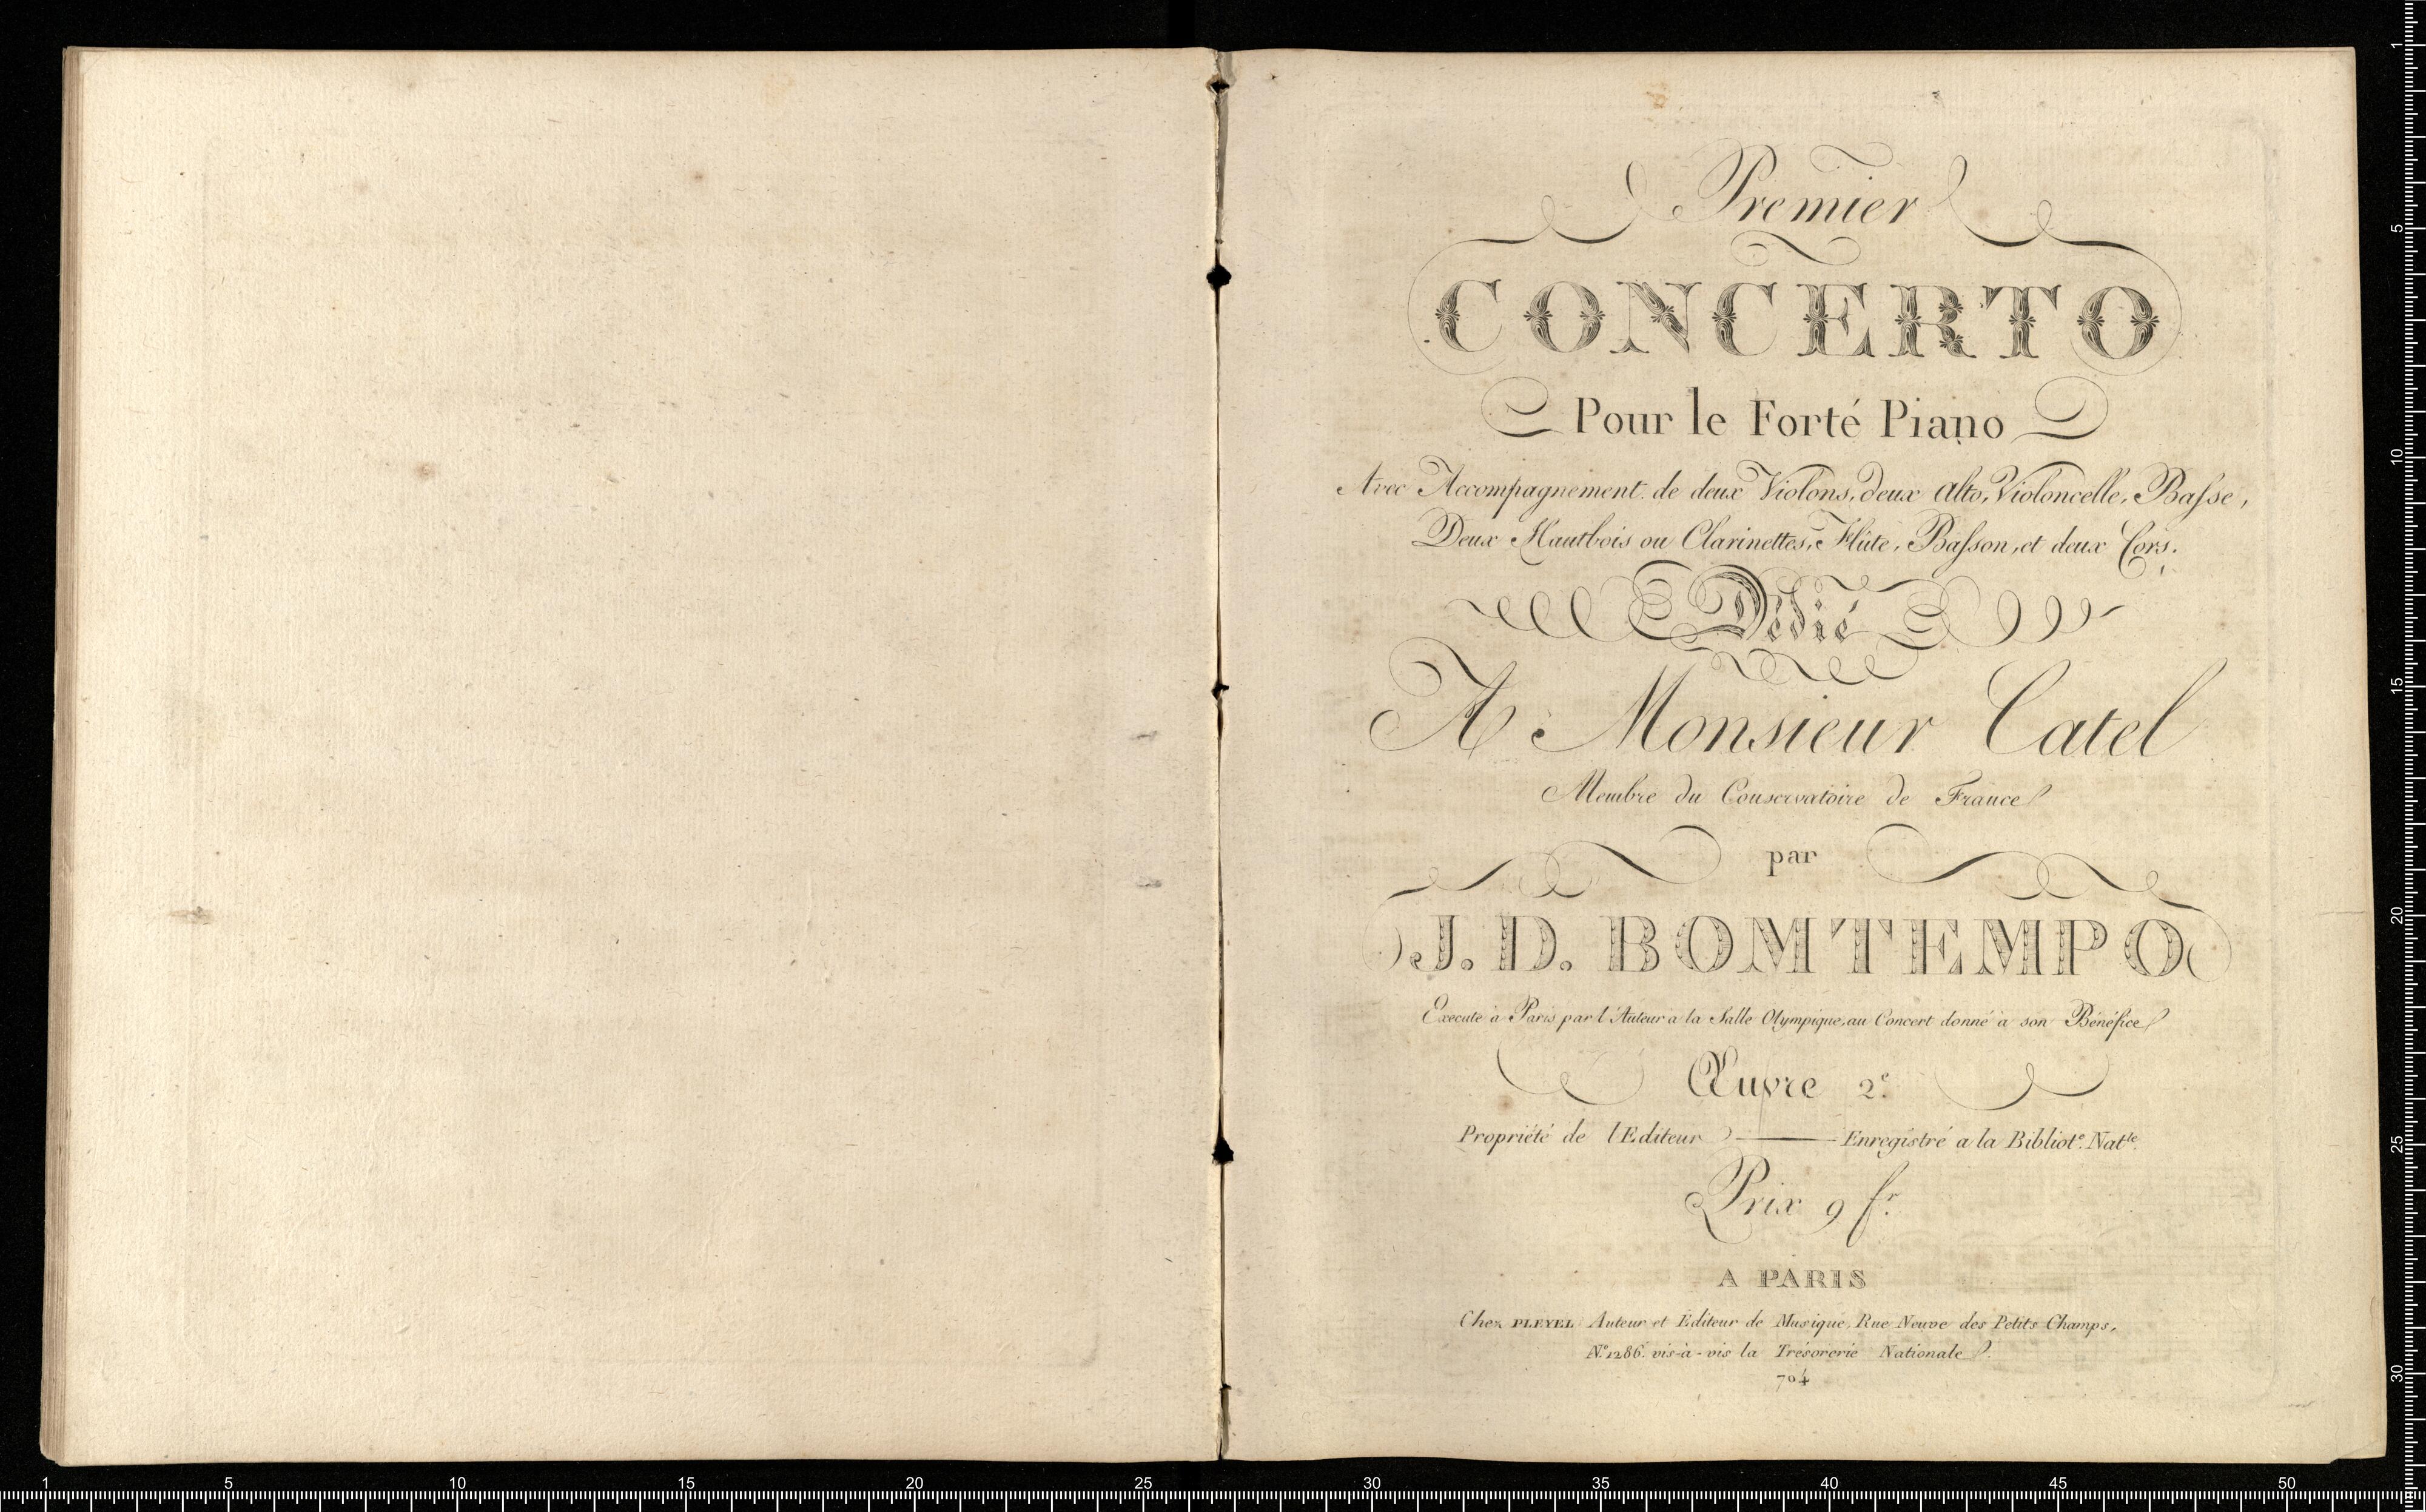 Premier
CONCERTO
Pour le Forté Piano
Avec Accompagnement de deux Violons, deux Alto, Violoncelle, Basse,
Deux Hautbois ou Clarinettes, Flûte, Basson, et deux Cors.
Dédié
A Monsieur Catel
Membre du Conservatoire de France
par
J. D. BOMTEMPO
Execute à Paris par l'Auteur a la Salle Olympique, au Concert donné à son Bénéfice
Œuvre 2e.
Propriété de l'Editeur — Enregistré a la Bibliote. Natle.
Prix 9 fr.
A PARIS
Chez PLEYEL Auteur et Editeur de Musique, Rue Neuve des Petits Champs,
No. 1286. vis-à-vis la Trésorerie Nationale.
704
1 5 10 15 20 25 30 35 40 45 50
1
5
10
15
20
25
30